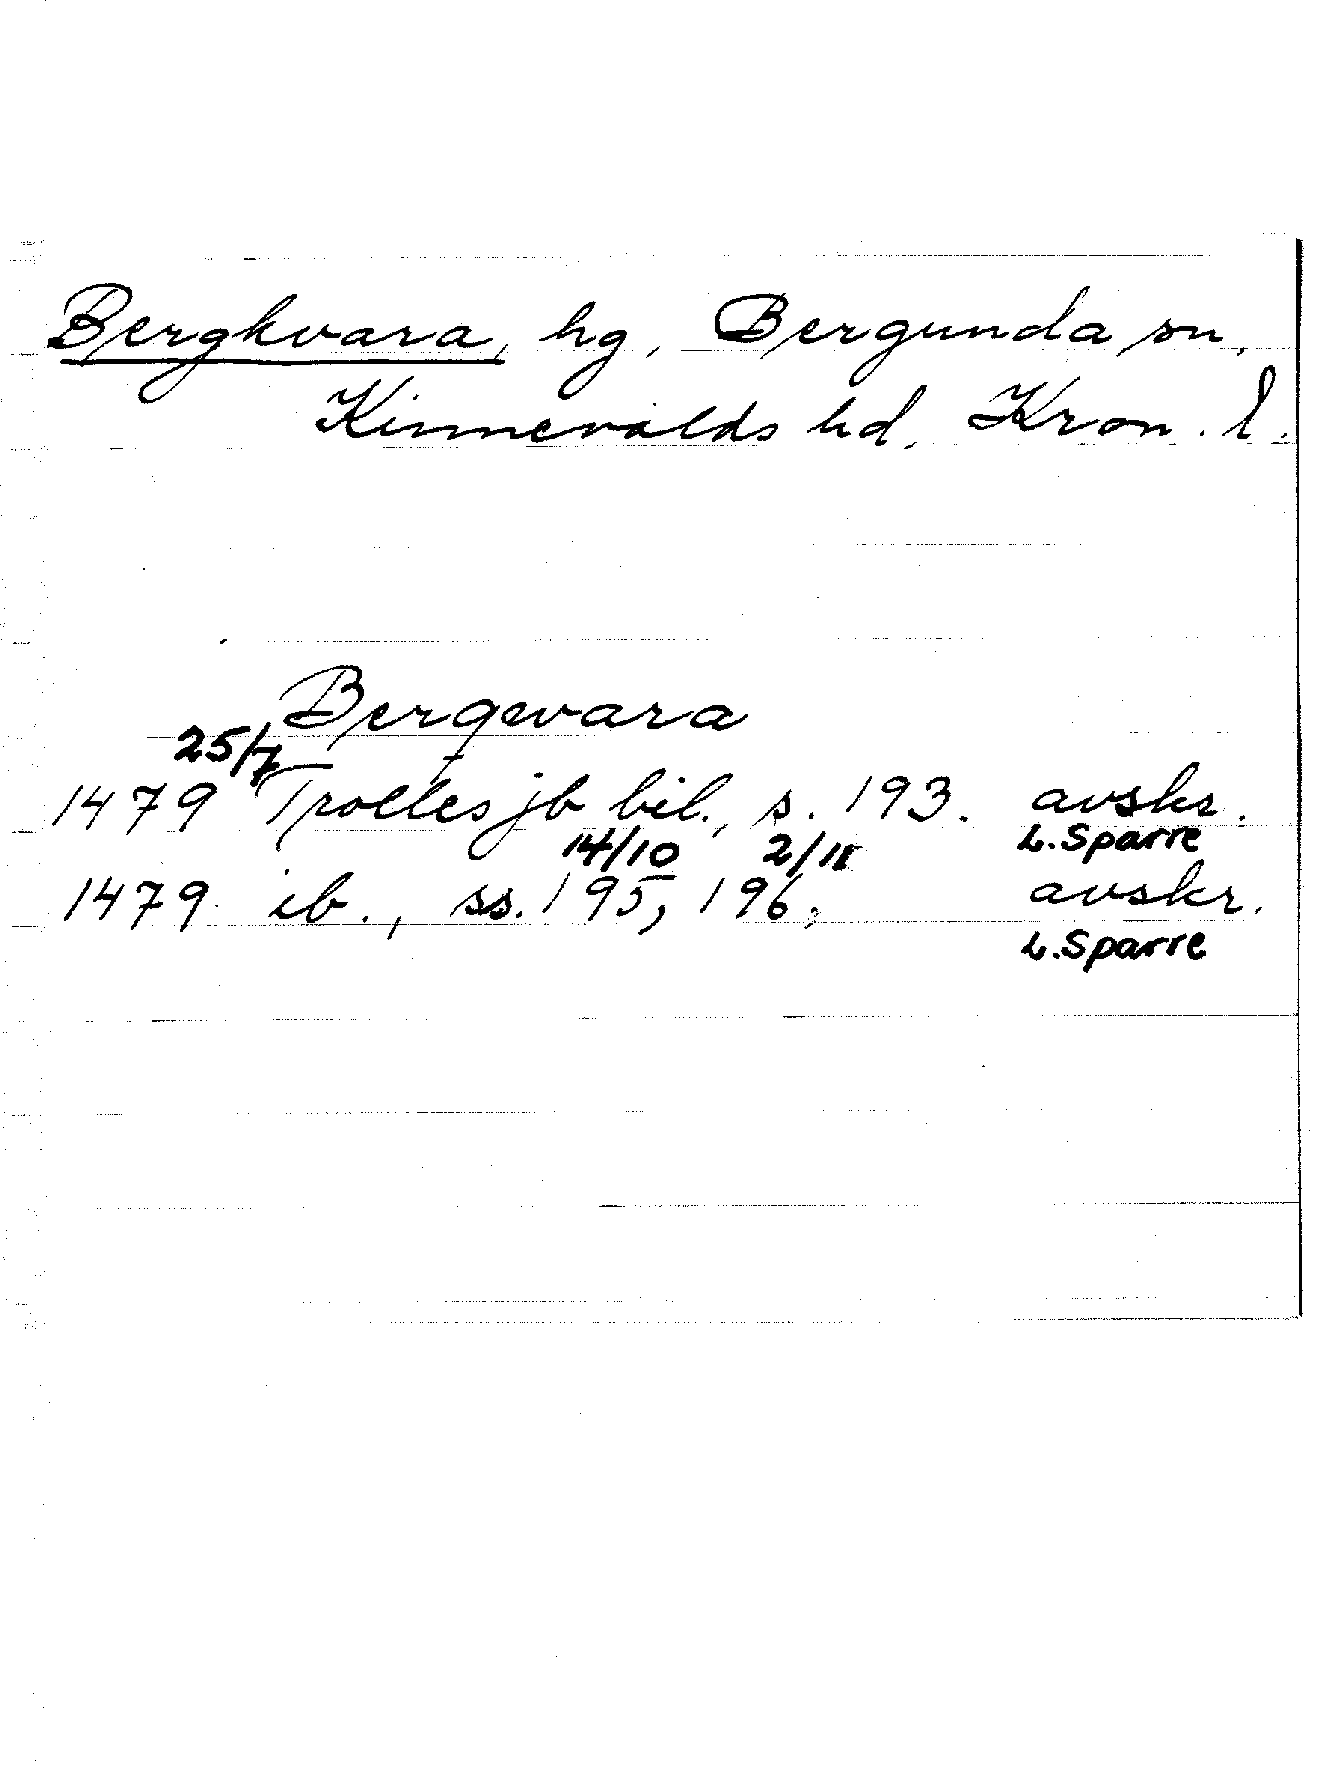 Bergkvara, hg, Bergunda sn,
Kinnevalds hd, Kron. l.
Bergqvara
25/7
1479 Trolles jb bil., s. 193. avskr.
14/10 2/11 L. Sparre
1479 ib., ss. 195, 196. avskr.
L. Sparre